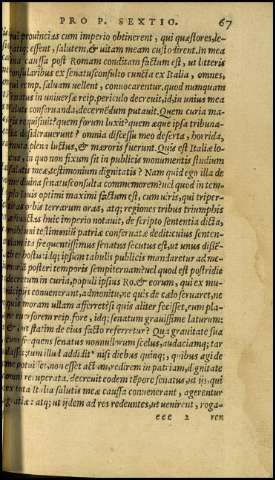 PRO P. SEXTIO. 67
qui prouincias cum imperio obtinerent, qui quæstores, le-
essent, salutem, & uitam meam custodirent. in mea
caussa post Romam conditam factum est, ut litteris
consularibus ex senatusconsulto cuncta ex Italia, omnes,
remp. saluam uellent, conuocarentur. quod nunquam
natus in uniuersæ reip. periculo decreuit, id, in unius mea
salute conseruanda, decernēdum putauit. Quem curia ma-
requisiuit? quem forum luxit? quem æque ipsa tribuna-
desiderauerunt? omnia discessu meo deserta, horrida,
muta, plena luctus, & mæroris fuerunt. Quis est Italiæ lo-
in quo non fixum sit in publicis monumentis studium
salutis meæ, testimonium dignitatis? Nam quid ego illa de
diuina senatusconsulta commemorem? uel quod in tem-
Iouis optimi maximi factum est, cum uiris, qui triper-
orbis terrarum oras, atq; regiones tribus triumphis
huic imperio notauit, de scripto sententia dicta,
testimonium patriæ conseruatæ dedit: cuius senten-
frequentissimus senatus secutus est, ut unus dissē-
hostis: idq; ipsum tabulis publicis mandaretur ad me-
posteri temporis sempiternam? uel quod est postridie
decretum in curia, populi ipsius Ro. & eorum, qui ex mu-
conuenerant, admonitu, ne quis de cælo seruaret, ne
moram ullam afferret: si quis aliter fecisset, eum pla-
euersorem reip. fore, idq; senatum grauissime laturum:
ut statim de eius facto referretur? Qua grauitate sua
frequens senatus nonnullorum scelus, audaciamq; tar-
tamen illud addidit nisi diebus quinq;, quibus agi de
potuisset, non esset actum, redirem in patriam, dignitate
recuperata. decreuit eodem tēpore senatus, ut iis, qui
ex tota Italia salutis meæ caussa conuenerant, agerentur
gratiæ: atq; ut ijdem ad res redeuntes, ut uenirent, roga-
eee 2 ren